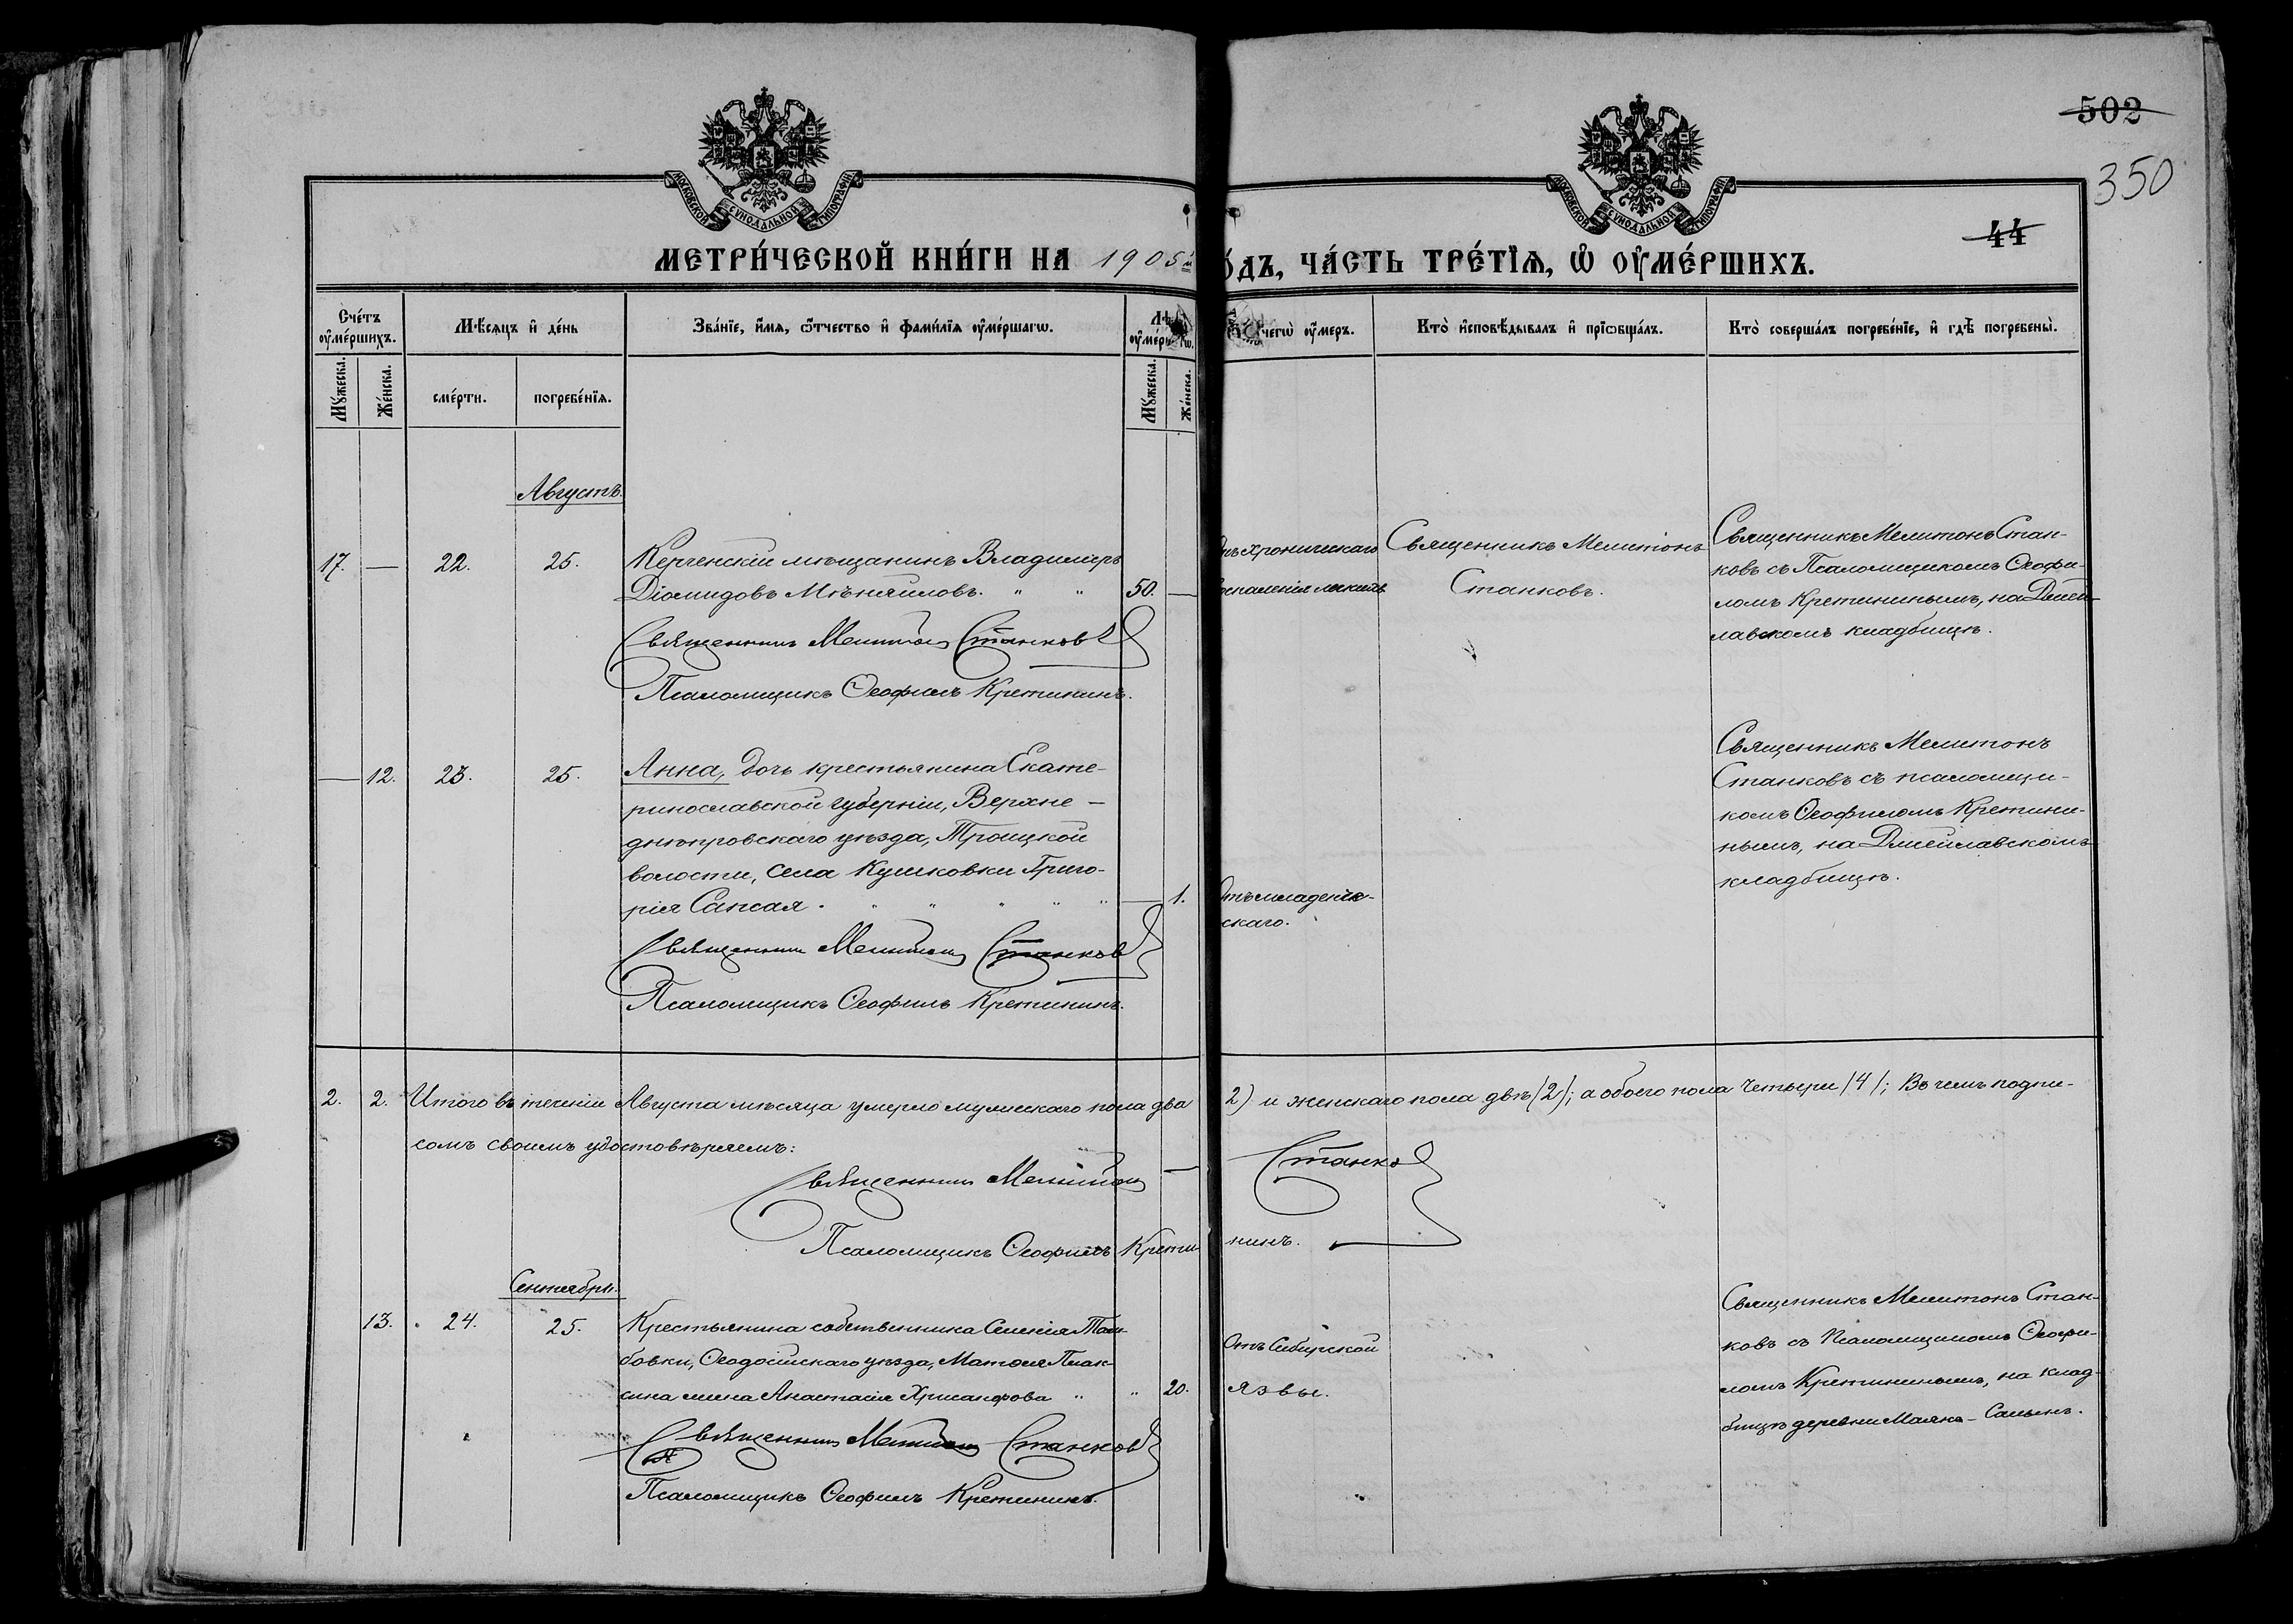 502
350
44
МОСКОВСКОЙ СѴНОДАЛЬНОЙ ТИПОГРАФІИ
МОСКОВСКОЙ СѴНОДАЛЬНОЙ ТИПОГРАФІИ
МЕТРИ́ЧЕСКОЙ КНИ́ГИ НА 1905й
ѻ́дъ, ча́сть тре́тїѧ, ѡ҆ ᲂу҆ме́ршихъ.
Сче́тъ ᲂу҆ме́ршихъ.
Мѣ́сѧцъ и҆ де́нь
Зва́нїе, и҆́мѧ, ѻ҆́тчество и҆ фами́лїѧ ᲂу҆ме́ршагѡ.
Лѣ
чегѡ̀ ᲂу҆́меръ.
Кто̀ и҆сповѣ́дывалъ и҆ прїѡбща́лъ.
Кто̀ соверша́лъ погребе́нїе, и҆ гдѣ̀ погребены̀.
Мꙋ́жеска.
Же́нска.
сме́рти.
погребе́нїѧ.
Мꙋ́жеска.
Же́нска.
Августъ.
17. — 22. 25. Керченскій мѣщанинъ Владиміръ
Діомидовъ Мѣняйловъ. " " 50. —
Священникъ Мелитонъ Станковъ
Псаломщикъ Ѳеофилъ Кретининъ.
хроническаго
воспаленія легкихъ
Священникъ Мелитонъ
Станковъ.
Священникъ Мелитонъ Стан-
ковъ съ Псаломщикомъ Ѳеофи-
ломъ Кретининымъ, на Джей-
лавскомъ кладбищѣ.
— 12. 23. 25. Анна, дочь крестьянина Екате-
ринославской губерніи, Верхне-
днѣпровскаго уѣзда, Троицкой
волости, села Кушковки Григо-
рія Сапсая. " " " " " — 1.
Священникъ Мелитонъ Станковъ
Псаломщикъ Ѳеофилъ Кретининъ.
Отъ младенче-
скаго.
Священникъ Мелитонъ
Станковъ съ псаломщи-
комъ Ѳеофиломъ Кретини-
нымъ, на Джейлавскомъ
кладбищѣ.
2. 2. Итого въ теченіи Августа мѣсяца умерло мужескаго пола два
2) и женскаго пола двѣ (2); а обоего пола четыри (4); Въ чемъ подпи-
сомъ своимъ удостовѣряемъ:
Священникъ Мелитонъ — Станковъ
Псаломщикъ Ѳеофилъ Крети-
нинъ.
Сентябрь.
13. 24. 25. Крестьянина собственника Селенія
Ѳеодосійскаго уѣзда, Матѳея Плак-
сина жена Анастасія Хрисанфова " " 20.
Священникъ Мелитонъ Станковъ
Псаломщикъ Ѳеофилъ Кретининъ.
Отъ Сибирской
язвы.
Священникъ Мелитонъ Стан-
ковъ съ Псаломщикомъ Ѳеофи-
ломъ Кретининымъ, на клад-
бищѣ деревни Маякъ-Салынъ.